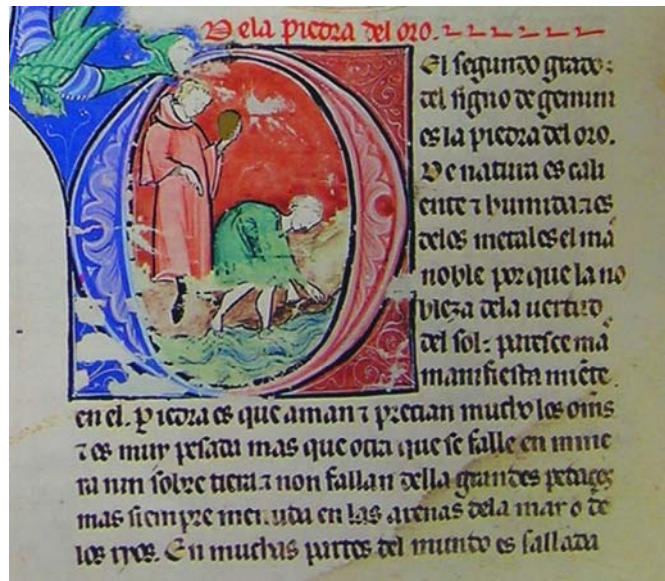 De la piedra del oro.
Del segundo grado:
del signo de gemini
es la piedra del oro.
De natura es cali
ente ⁊ humida: ⁊ es
delos metales el ma
noble por que la no
bleza dela uertud
del sol: paresce ma
manifiesta miẽte.
en el. Piedra es que aman ⁊ precian mucho los oms̃
⁊ es muy pesada mas que otra que se falle en mine
ra nin sobre tierra: ⁊ non fallan della grandes pedaços
mas siempre menuda en las arenas dela mar o de
los rios. En muchas partes del mundo es fallada